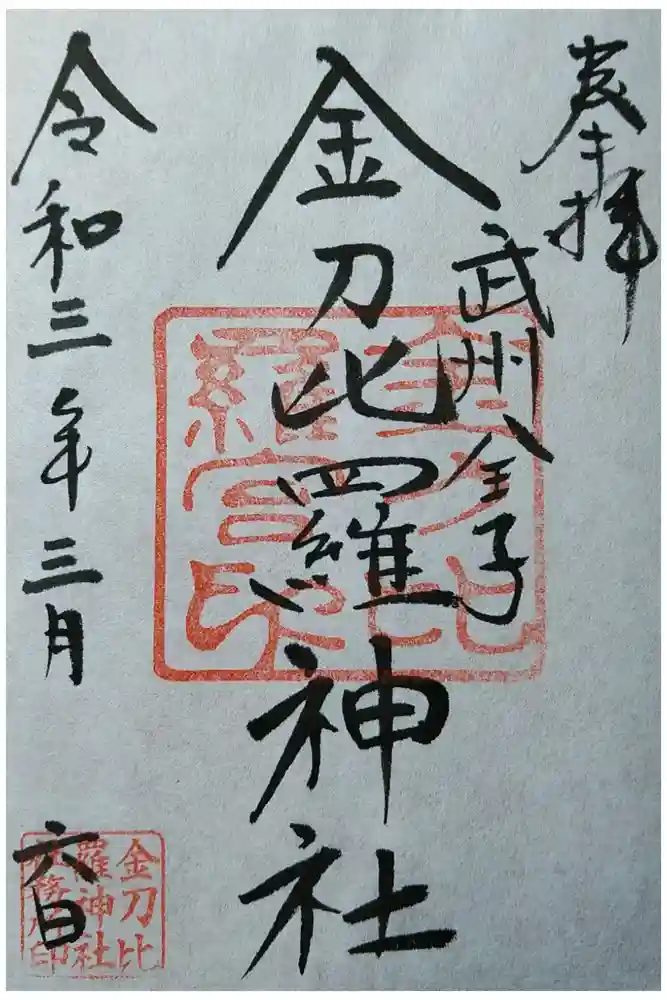 奉拝
武州金子
金刀比羅神社
令和三年三月六日
金刀比
羅宮印
金刀比
羅神社